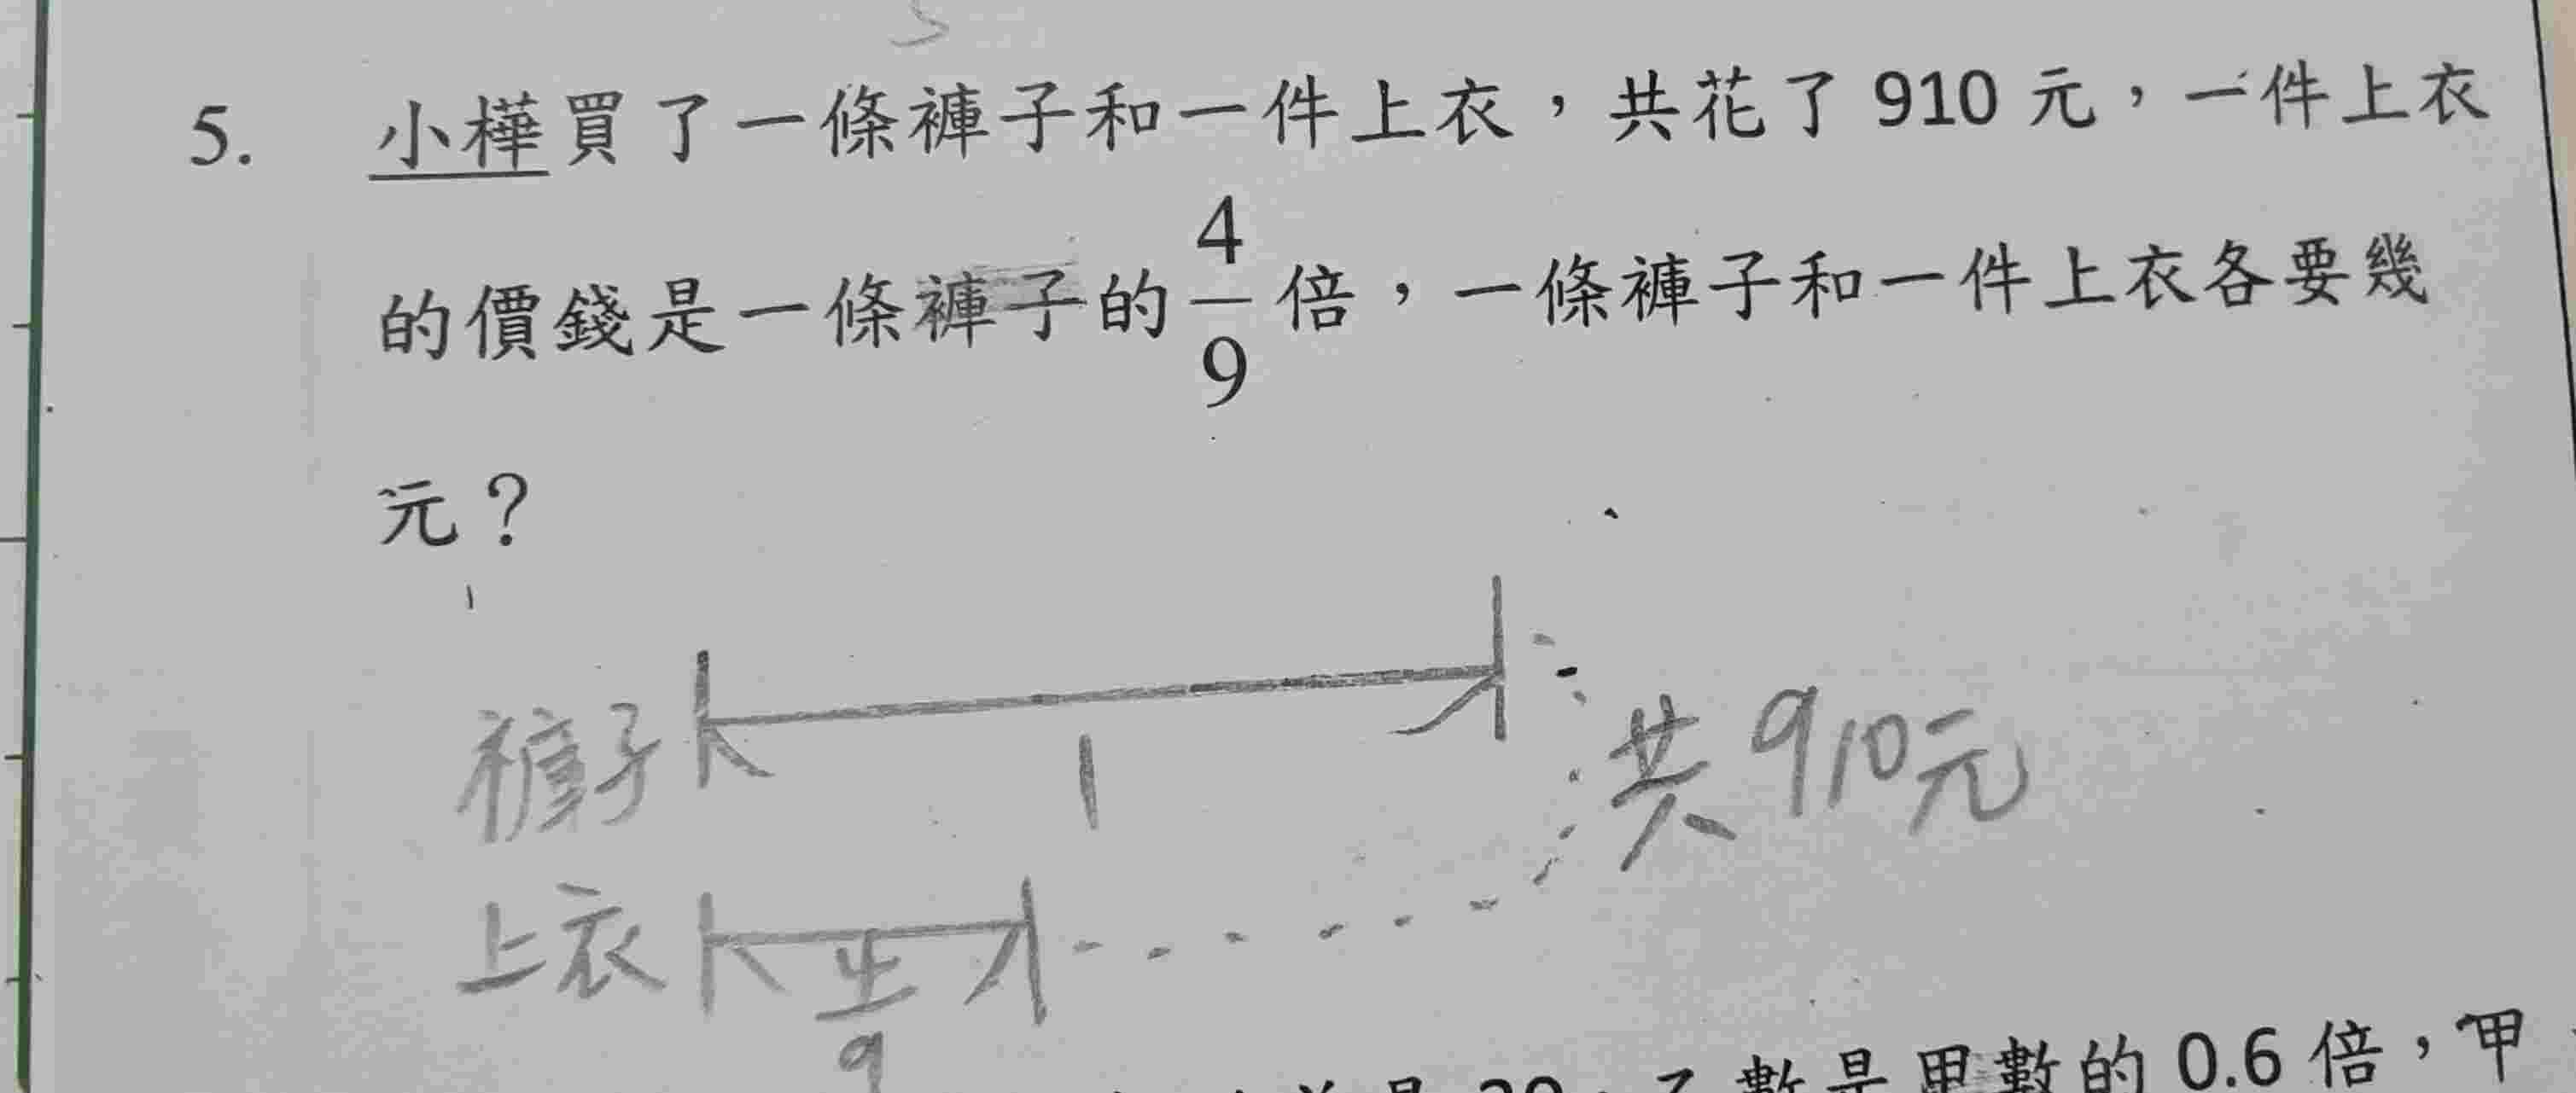 5. 小樺買了一條褲子和一件上衣，共花了 910 元，一件上衣
的價錢是一條褲子的 4/9 倍，一條褲子和一件上衣各要幾
元？
褲子 1 共910元
上衣 4/9
數是甲數的 0.6 倍，甲